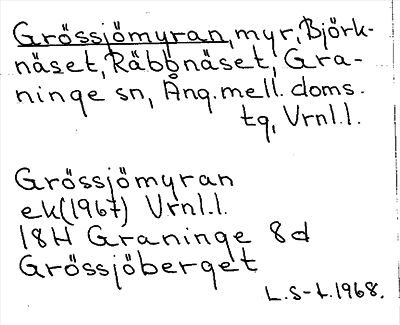 Grössjömyran, myr, Björk-
näset, Räbbnäset, Gra-
ninge sn, Ång.mell. doms.
tg, Vrnl.l.
Grössjömyran
ek(1967) Vrnl.l.
18H Graninge 8d
Grössjöberget
L.S-t.1968.